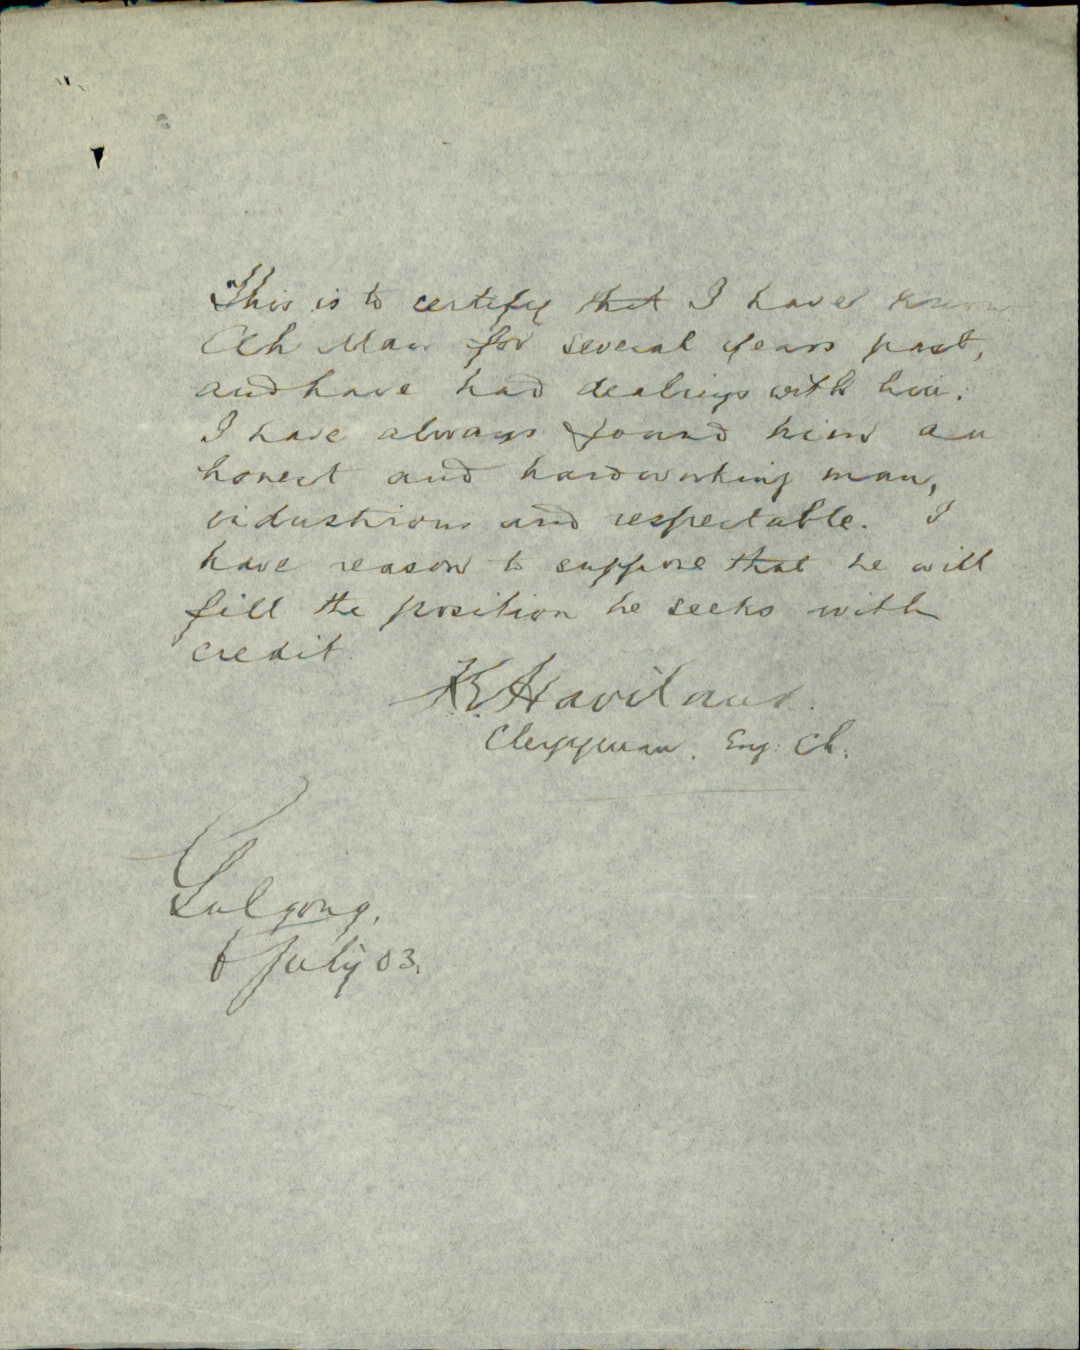 This is to certify that I have known
Ah Man for several years past,
and have had dealings with him.
I have always found him an
honest and hardworking man,
industrious and respectable. I
have reason to suppose that he will
fill the position he seeks with
credit.
Haviland.
Clergyman. Eng. Ch.
Gulgong,
6 July 03.